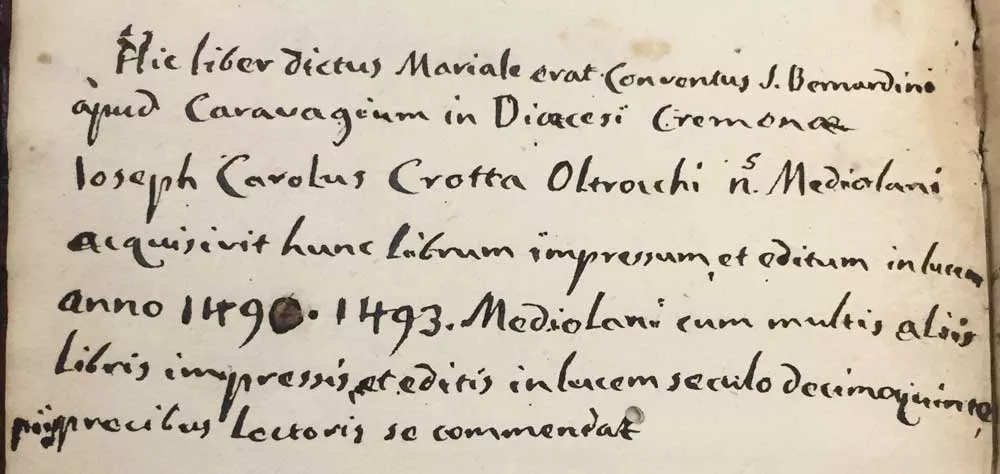 Hic liber dictus Mariale erat Conventus S. Bernardini
apud Caravagium in Diœcesi Cremonæ
Ioseph Carolus Crotta Oltrocchi n.s Mediolani
acquisivit hunc librum impressum, et editum in lucem
anno 1490. 1493. Mediolani cum multis aliis
libris impressis, et editis in lucem seculo decimoquinto,
piis precibus Lectoris se commendat